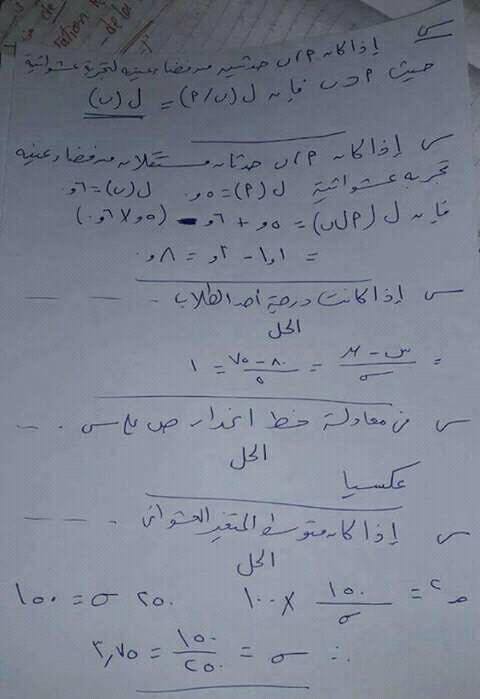 س إذا كان P، ن حدثين من فضاء عينة لتجربة عشوائية
حيث P ⊃ ن فإن ل (P/ن) = ل (ن)
س إذا كان P، ن حدثان مستقلان من فضاء عينة
تجربة عشوائية ل (P) = ٥و. ل (ن) = ٦و.
فإن ل (P∪ن) = ٥و + ٦و - (٥و × ٦و.)
= ١و١ - ٣و = ٨و.
س إذا كانت درجة أحد الطلاب . - - -
الحل
= س - μ / σ = ٨٠ - ٧٥ / ٥ = ١
س من معادلة خط انحدار ص على س . - -
الحل
عكسيا
س إذا كان متوسط المتغير العشوائى . - - -
الحل
= ١٥٠ / σ × ١٠٠ ٢٥٠ = σ ١٥٠
∴ σ = ١٥٠ / ٢٥٠ = ٣,٧٥